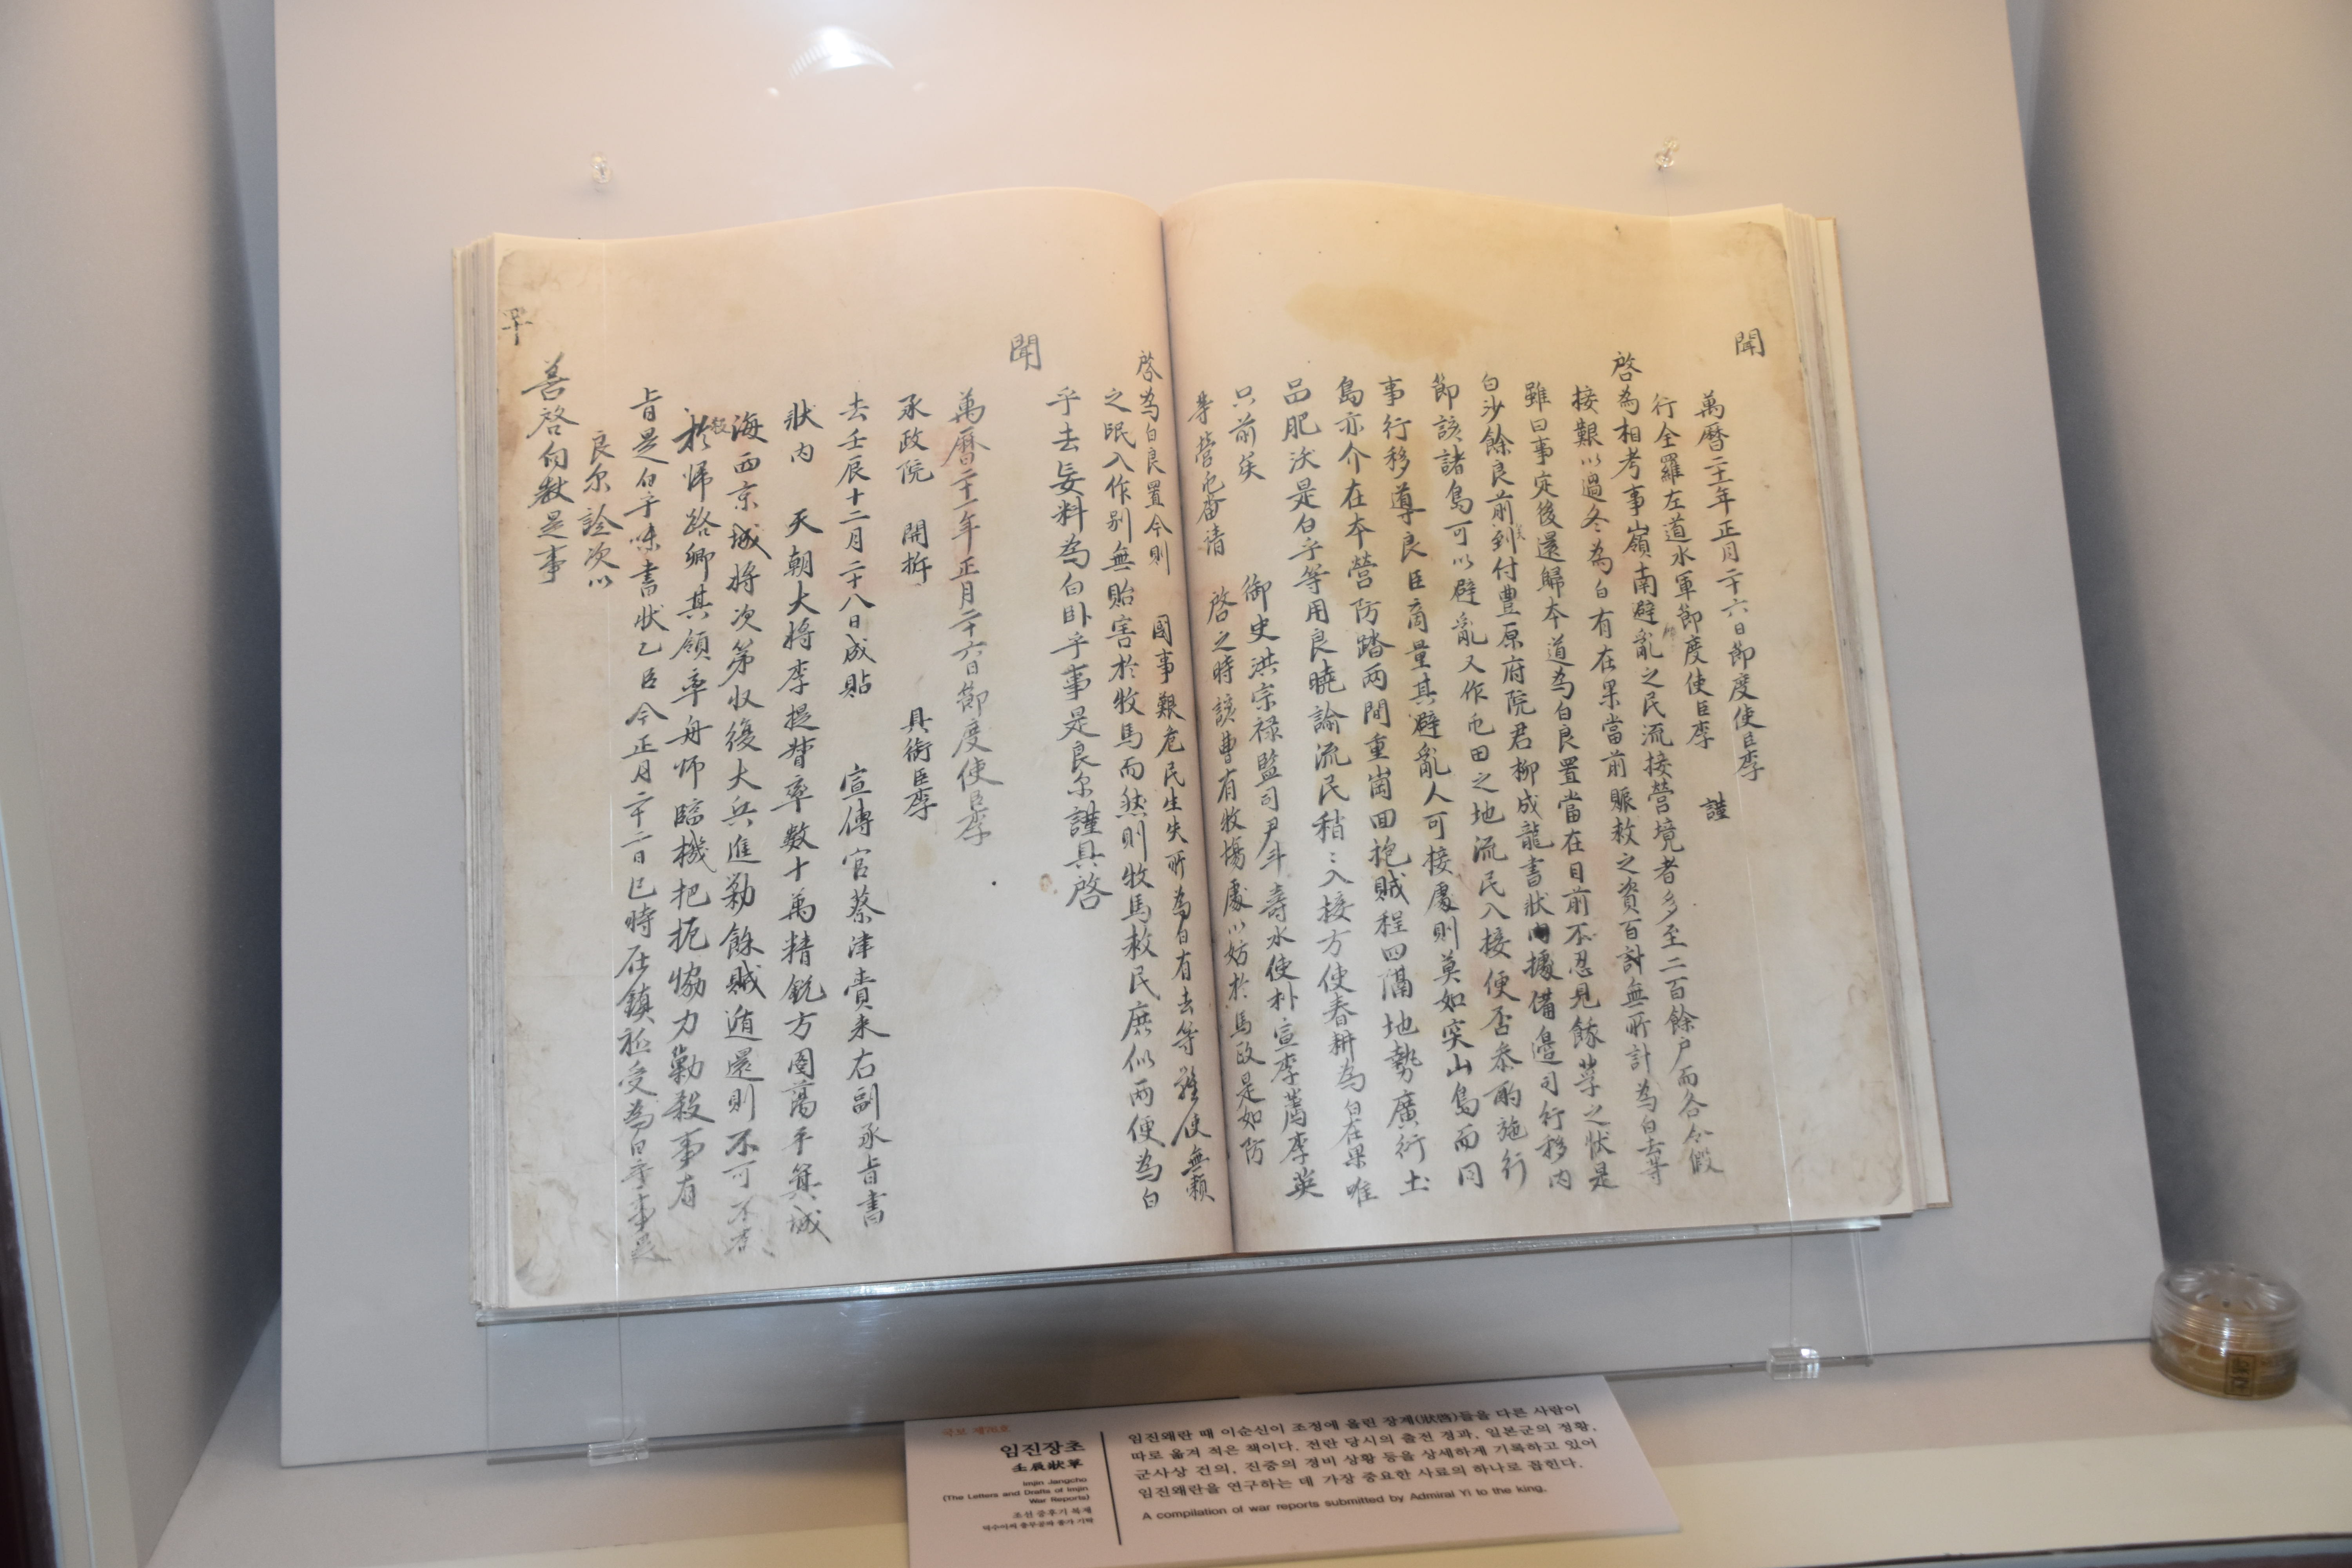 聞
萬曆二十一年正月二十六日節度使臣李
行全羅左道水軍節度使臣李 謹
啓為相考事嶺南避亂之民流接營境者多至二百餘戶而各令假
接艱以過冬為白有在果當前賑救之資百計無所計為白去等
雖曰事定後還歸本道為白良置當在目前不忍見餓莩之狀是
白沙餘良前到付豊原府院君柳成龍書狀內據備邊司行移內
節該諸島可以避亂又作屯田之地流民入接便否叅酌施行
事行移導良臣商量其避亂人可接處則莫如突山島而同
島亦介在本營防踏兩間重崗回抱賊程四隔地勢廣衍土
品肥沃是白乎等用良曉諭流民稍〻入接方使春耕為白在果唯
只前矣 御史洪宗祿監司尹斗壽水使朴宣李薦李英
等營屯畓請 啓之時該曹有牧場處以妨於馬政是如防
啓為白良置今則 國事艱危民生失所為白有去等雖使無賴
之民入作別無貽害於牧馬而然則牧馬救民庶似兩便為白
乎去妄料為白臥乎事是良尔謹具啓
聞
萬曆二十一年正月二十六日節度使臣李
承政院 開拆 具銜臣李
去壬辰十二月二十八日成貼 宣傳官蔡津賫来右副承旨書
狀內 天朝大將李提督率數十萬精銳方圖蕩平箕城
海西京城將次第收復大兵進勦餘賊遁還則不可不
於歸路卿其領率舟師臨機把扼恊力勦殺事有
旨是白乎味書狀乙臣今正月二十二日巳時在鎮祗受為白乎事是
良尔詮次以
善啓向敎是事
국보 제76호
임진장초
壬辰狀草
Imjin Jangcho
(The Letters and Drafts of Imjin
War Reports)
조선 중후기 복제
임진왜란 때 이순신이 조정에 올린 장계(狀啓)들을 다른 사람이
따로 옮겨 적은 책이다. 전란 당시의 출전 경과, 일본군의 정황,
군사상 건의, 진중의 경비 상황 등을 상세하게 기록하고 있어
임진왜란을 연구하는 데 가장 중요한 사료의 하나로 꼽힌다.
A compilation of war reports submitted by Admiral Yi to the king.